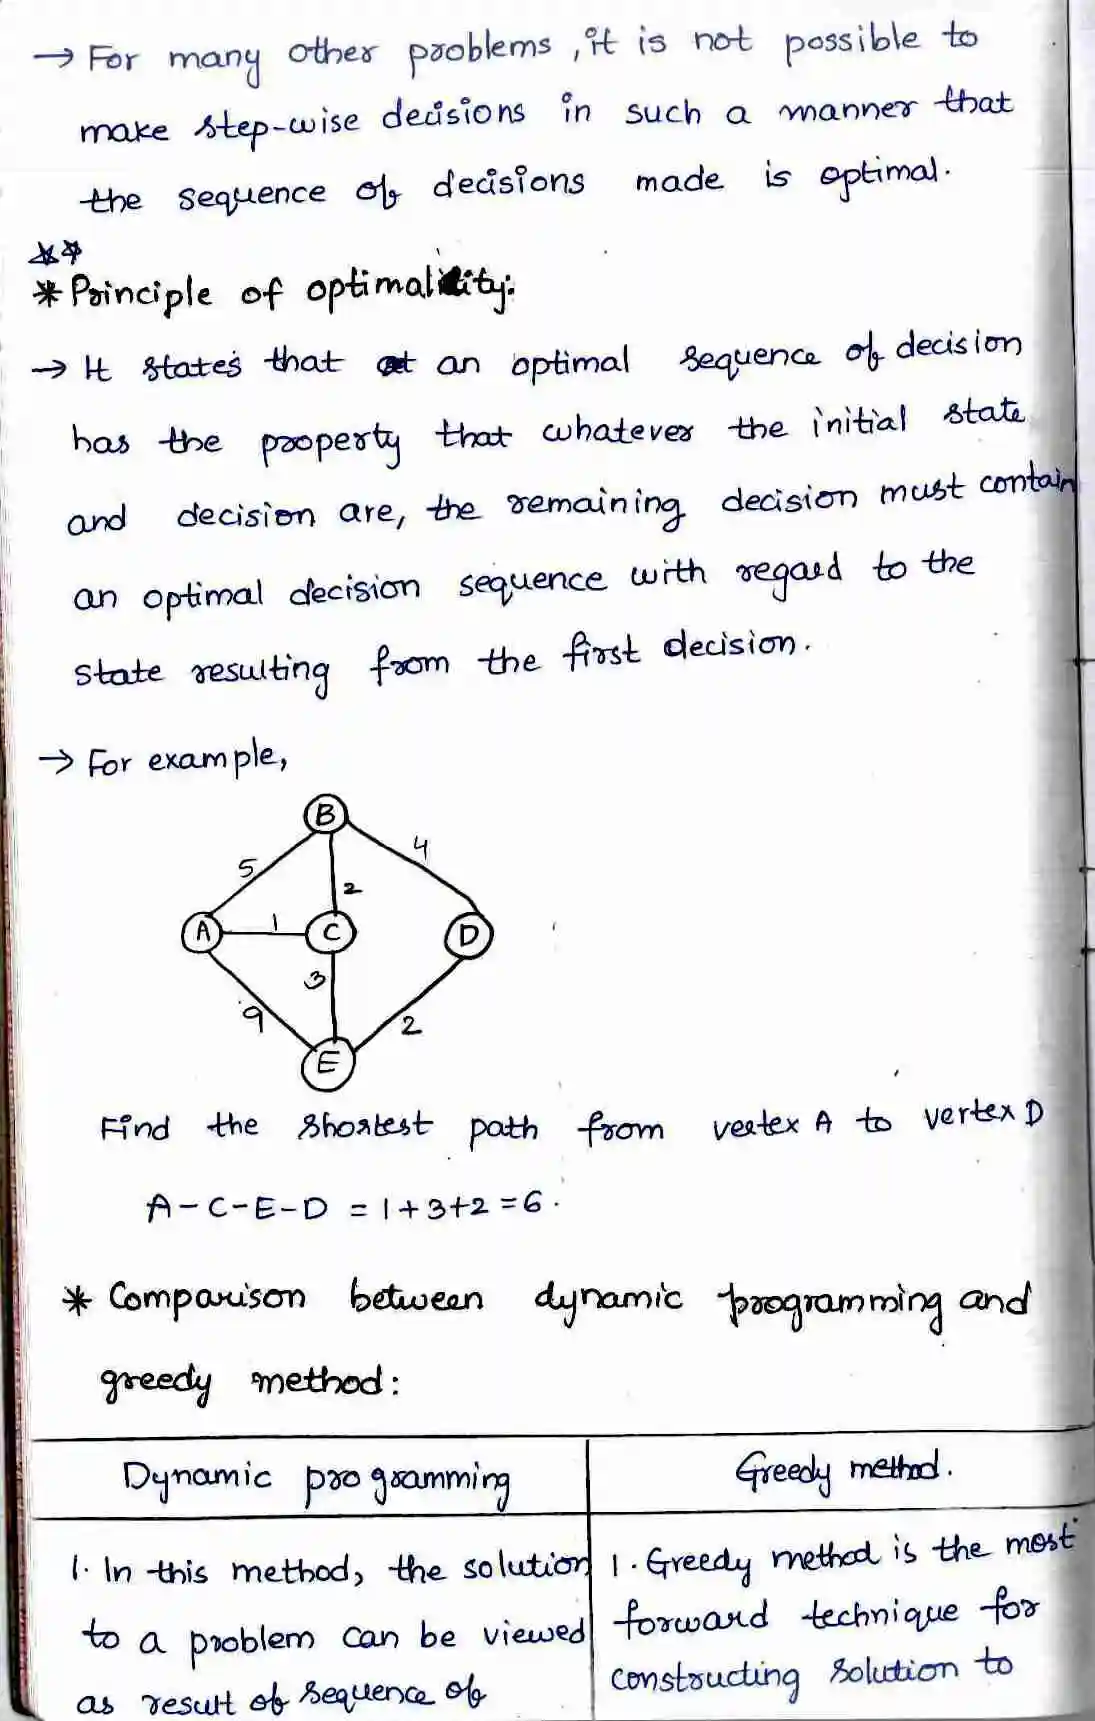 → For many other problems, it is not possible to
make step-wise decisions in such a manner that
the sequence of decisions made is optimal.
* Principle of optimality:
→ It states that an optimal sequence of decision
has the property that whatever the initial state
and decision are, the remaining decision must contain
an optimal decision sequence with regard to the
state resulting from the first decision.
→ For example,
B
5
4
2
A
1
C
D
3
9
2
E
Find the shortest path from vertex A to vertex D
A-C-E-D = 1+3+2 = 6.
* Comparison between dynamic programming and
greedy method:
Dynamic programming
Greedy method.
1. In this method, the solution
to a problem can be viewed
as result of sequence of
1. Greedy method is the most
forward technique for
constructing solution to